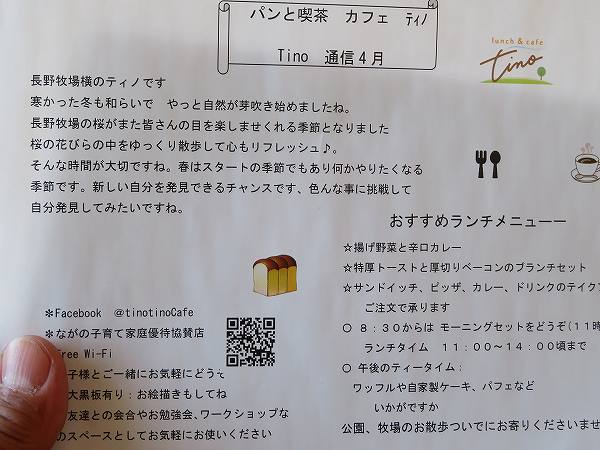 パンと喫茶　カフェ　ティノ
Tino　通信４月
lunch & cafe
tino
長野牧場横のティノです
寒かった冬も和らいで　やっと自然が芽吹き始めましたね。
長野牧場の桜がまた皆さんの目を楽しませくれる季節となりました
桜の花びらの中をゆっくり散歩して心もリフレッシュ♪。
そんな時間が大切ですね。春はスタートの季節でもあり何かやりたくなる
季節です。新しい自分を発見できるチャンスです、色んな事に挑戦して
自分発見してみたいですね。
＊Facebook　＠tinotinoCafe
＊ながの子育て家庭優待協賛店
Free Wi-Fi
子様とご一緒にお気軽にどうぞ
大黒板有り：お絵描きもしてね
友達との会合やお勉強会、ワークショップな
のスペースとしてお気軽にお使いください
おすすめランチメニューー
☆揚げ野菜と辛口カレー
☆特厚トーストと厚切りベーコンのブランチセット
☆サンドイッチ、ピッザ、カレー、ドリンクのテイク
ご注文で承ります
○ ８：３０からは モーニングセットをどうぞ(１１時
ランチタイム　１１：００～１４：００頃まで
○ 午後のティータイム；
ワッフルや自家製ケーキ、パフェなど
いかがですか
公園、牧場のお散歩ついでにお寄りくださいませ